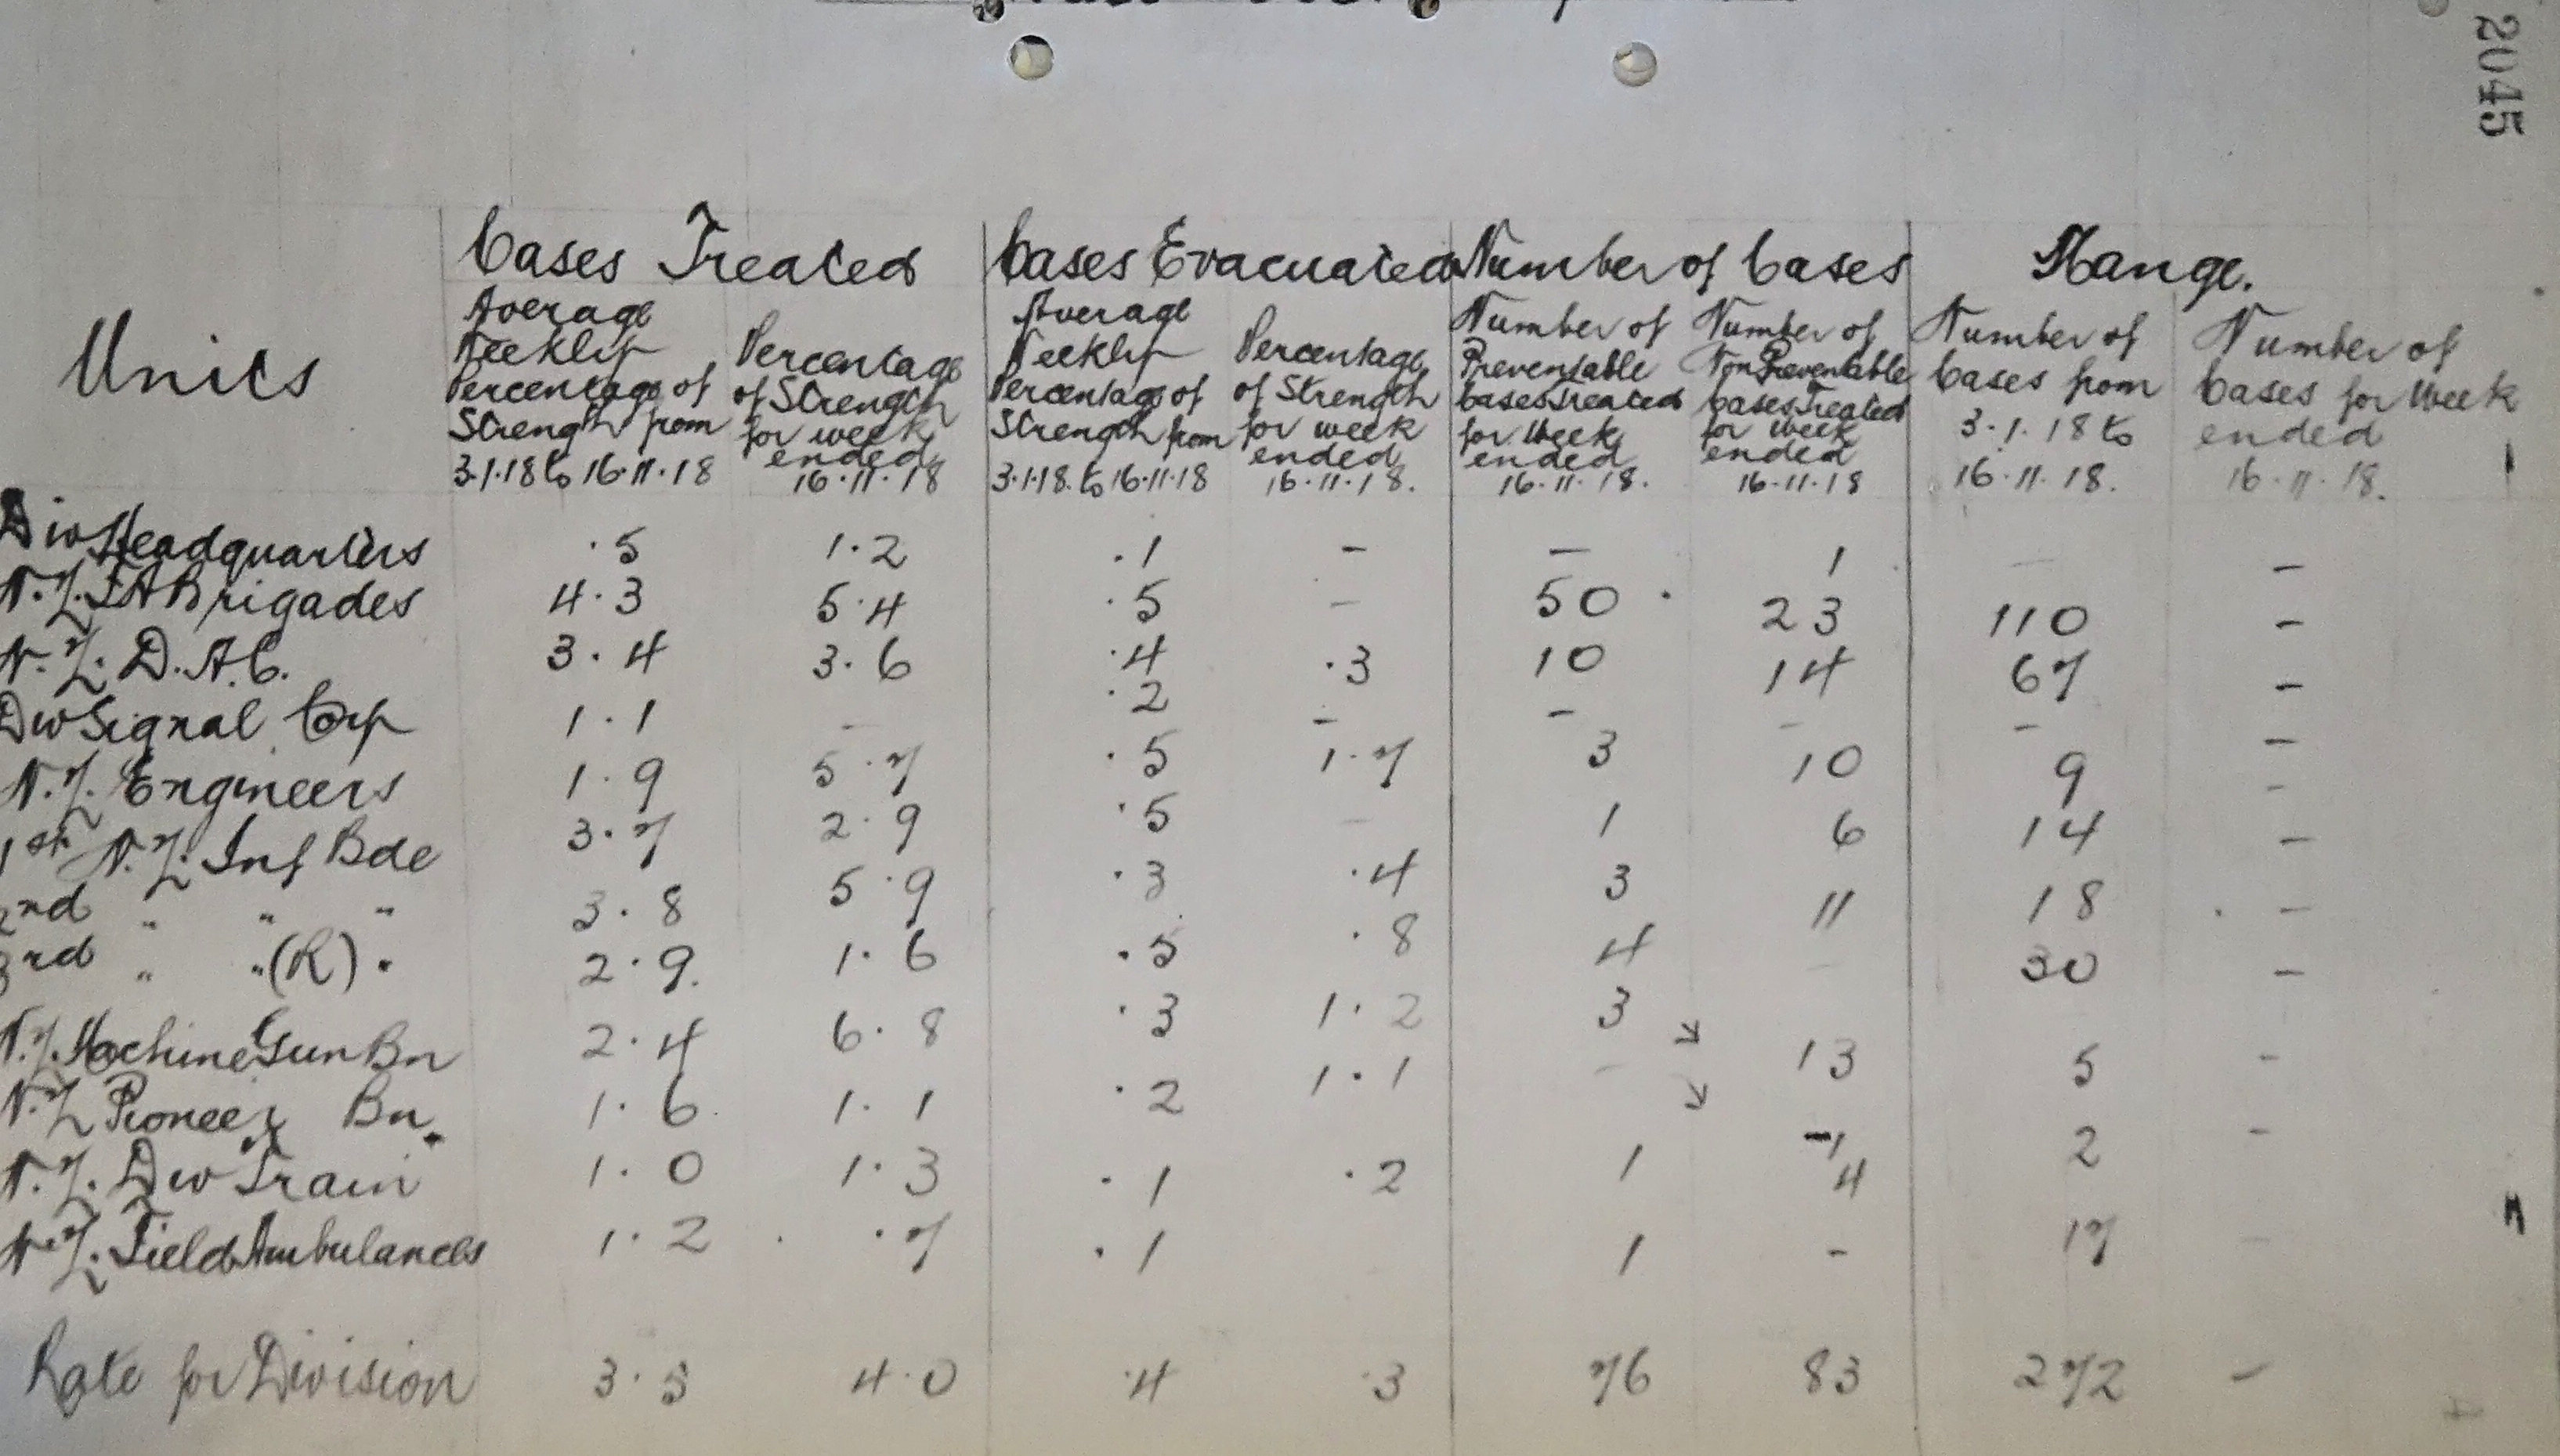 2045
Cases Treated Cases Evacuated Number of Cases Mange.
Units
Average Weekly Percentage of Strength from 3.1.18 to 16.11.18
Percentage of Strength for week ended 16.11.18
Average Weekly Percentage of Strength from 3.1.18. to 16.11.18
Percentage of Strength for week ended 16.11.18.
Number of Preventable Cases Treated for Week ended 16.11.18.
Number of Non Preventable Cases Treated for week ended 16.11.18
Number of Cases from 3.1.18 to 16.11.18.
Number of Cases for Week ended 16.11.18.
Div Headquarters .5 1.2 .1 - - 1 - -
N.Z. F A Brigades 4.3 5.4 .5 - 50 23 110 -
N.Z. D.A.C. 3.4 3.6 .4 .3 10 14 67 -
Div Signal Coy 1.1 - .2 - - - - -
N.Z. Engineers 1.9 5.7 .5 1.7 3 10 9 -
1st N.Z. Inf Bde 3.7 2.9 .5 - 1 6 14 -
2nd " " " 3.8 5.9 .3 .4 3 11 18 -
3rd " " (R) " 2.9. 1.6 .5 .8 4 - 30 -
N.Z. Machine Gun Bn 2.4 6.8 .3 1.2 3 13 5 -
N.Z Pioneer Bn. 1.6 1.1 .2 1.1 - 1 2 -
N.Z. Div Train 1.0 1.3 .1 .2 1 4
N.Z. Field Ambulances 1.2 .7 .1 1 - 17 -
Rate for Division 3.5 4.0 .4 .3 76 83 272 -